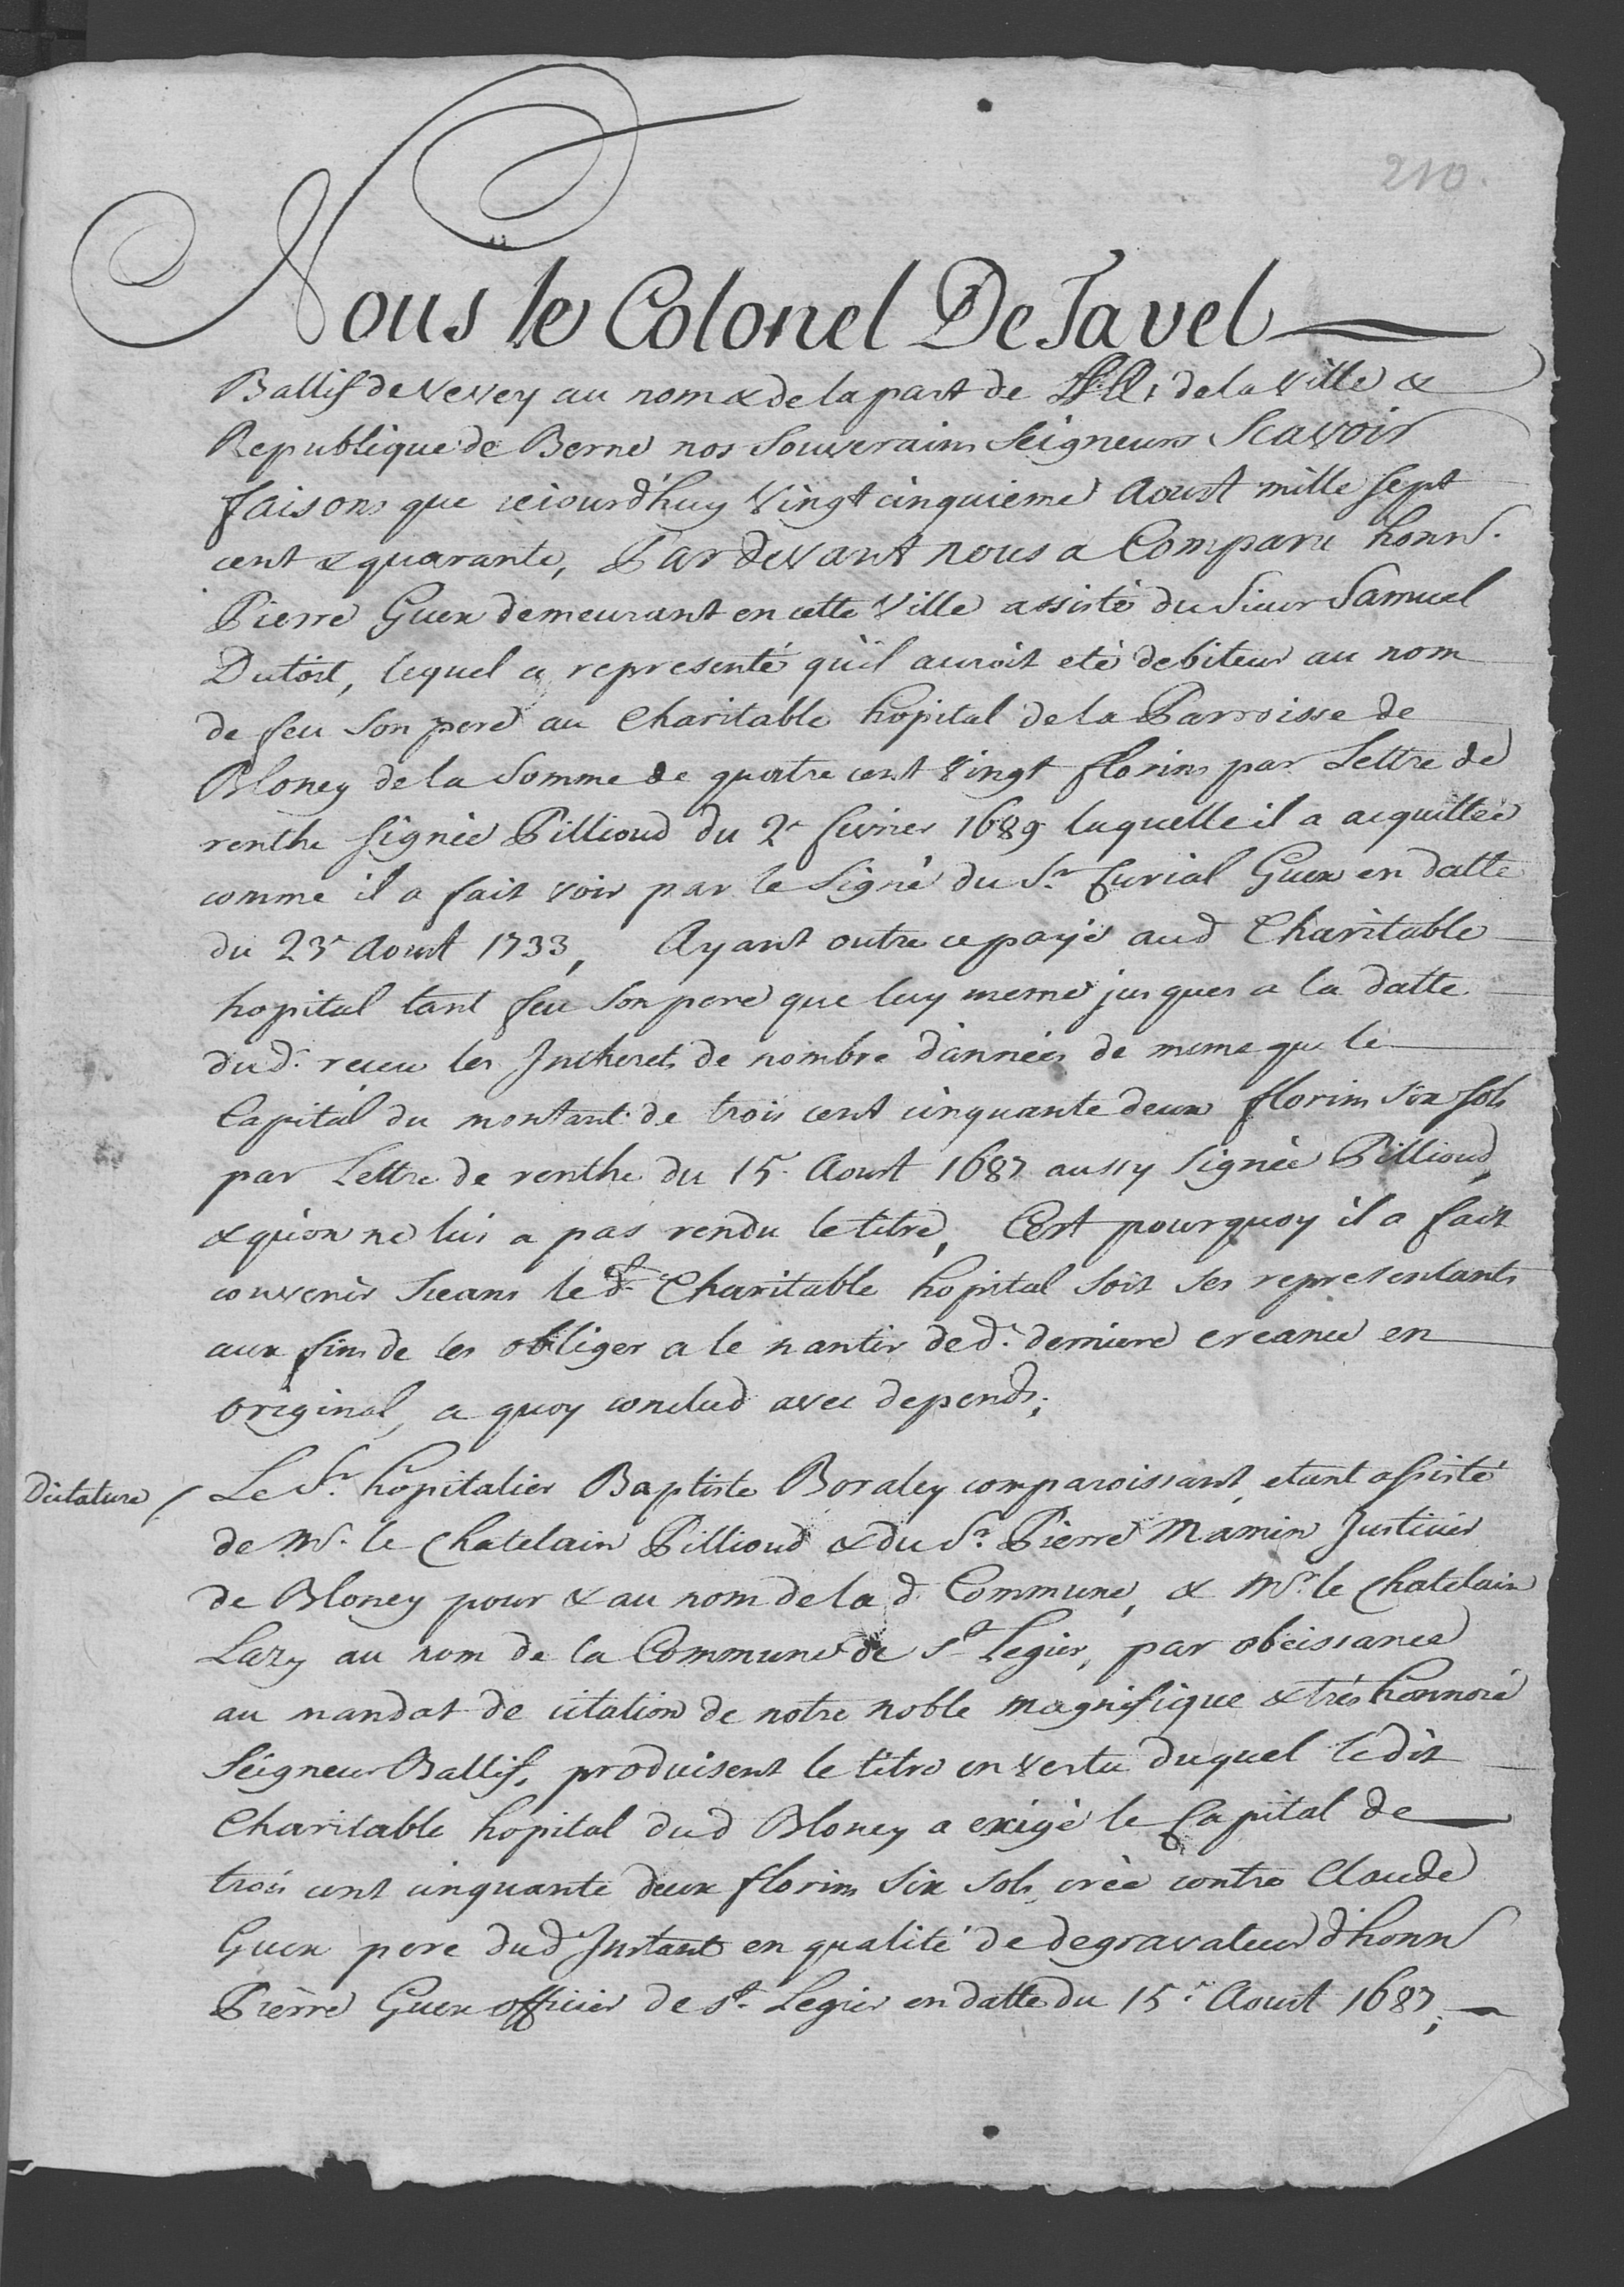 210.
Nous le Colonel De Tavel
Ballif de Vevey au nom & de la part de LL. EE. de la Ville &
Republique de Berne nos Souverains Seigneurs Scavoir
faisons que cejourd'huy Vingt cinquieme Aoust mille sept
cent & quarante, Par devant nous a Comparu honn.
Pierre Guex demeurant en cette Ville assisté du Sieur Samuel
Dutoit, lequel a representé qu'il auroit eté debiteur au nom
de feu Son pere au Charitable hôpital de la Parroisse de
Bloney de la Somme de quatre cent Vingt florins par Lettre de
renthe Signée Pillioud du 2e fevrier 1689 laquelle il a acquittée
comme il a fait voir par le Signé du Sr. Curial Guex en datte
du 23e Aoust 1733, Ayant outre ce payé aud Charitable
hopital tant feu Son pere que luy meme jusques a la datte
dud. receu les Intherets de nombre d'années de meme que le
Capital du montant de trois cent cinquante deux florins six sols
par Lettre de renthe du 15e Aoust 1687 aussy Signée Pillioud,
& qu'on ne lui a pas rendu le titre, C'est pourquoy il a fait
convenir Ceans led. Charitable hopital soit ses representants
aux fins de les obliger a le nantir de d. derniere creance en
Original, a quoy conclud avec depends;
Dictature / Le Sr. hôpitalier Baptiste Boraley comparoissant, etant assisté
de Mr. le Chatelain Pillioud & du Sr. Pierre Mamin Justicier
de Bloney pour & au nom de la d. Commune, & Mr. le Chatelain
Lazy au nom de la Commune de St. Legier, par obeissance
au mandat de citation de notre noble magnifique & trés honnoré
Seigneur Ballif, produisent le titre en Vertu duquel ledit
Charitable hopital dud Bloney a exigé le Capital de
trois cent cinquante deux florins six sols, crée contre Claude
Guex pere dud. Instant en qualité de degravateur d'honn
Pierre Guex officier de St. Legier en datte du 15e Aoust 1687;